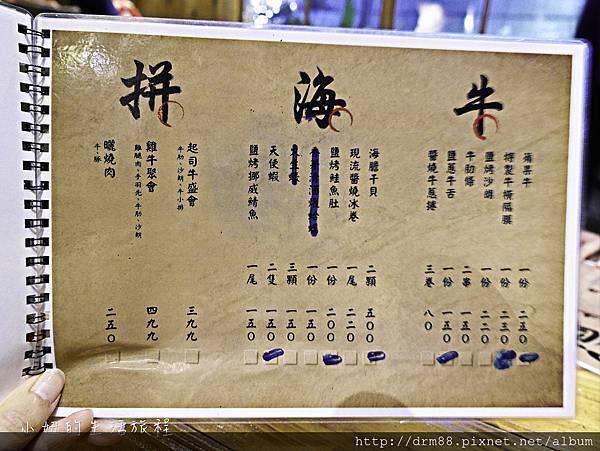 牛
蒜香牛 一份 二五〇
特製牛橫膈膜 一份 二三〇
鹽烤沙朗 一份 二二〇
牛肋條 二串 一五〇
鹽蔥牛舌 一份 一五〇
醬燒牛蔥捲 三卷 八〇
海
海膽干貝 二顆 五〇〇
現流醬燒冰卷 一尾 二二〇
鹽烤鮭魚肚 一份 二〇〇
一份 一五〇
三顆 一五〇
天使蝦 二隻 一五〇
鹽烤挪威鯖魚 一尾 一五〇
拼
起司牛盛會 三九九
牛肋、沙朗、牛小排
雞牛聚會 四九九
雞腿肉、手羽先、牛肋、沙朗
曬燒肉 二五〇
牛、豚
小妞的生活旅程
http://drm88.pixnet.net/album